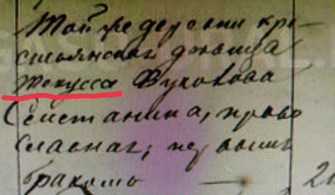 Той же деревни кре
стьянская девица
Текусса Вуколова
Сметанина, право
славная, первымъ
бракомъ — 2